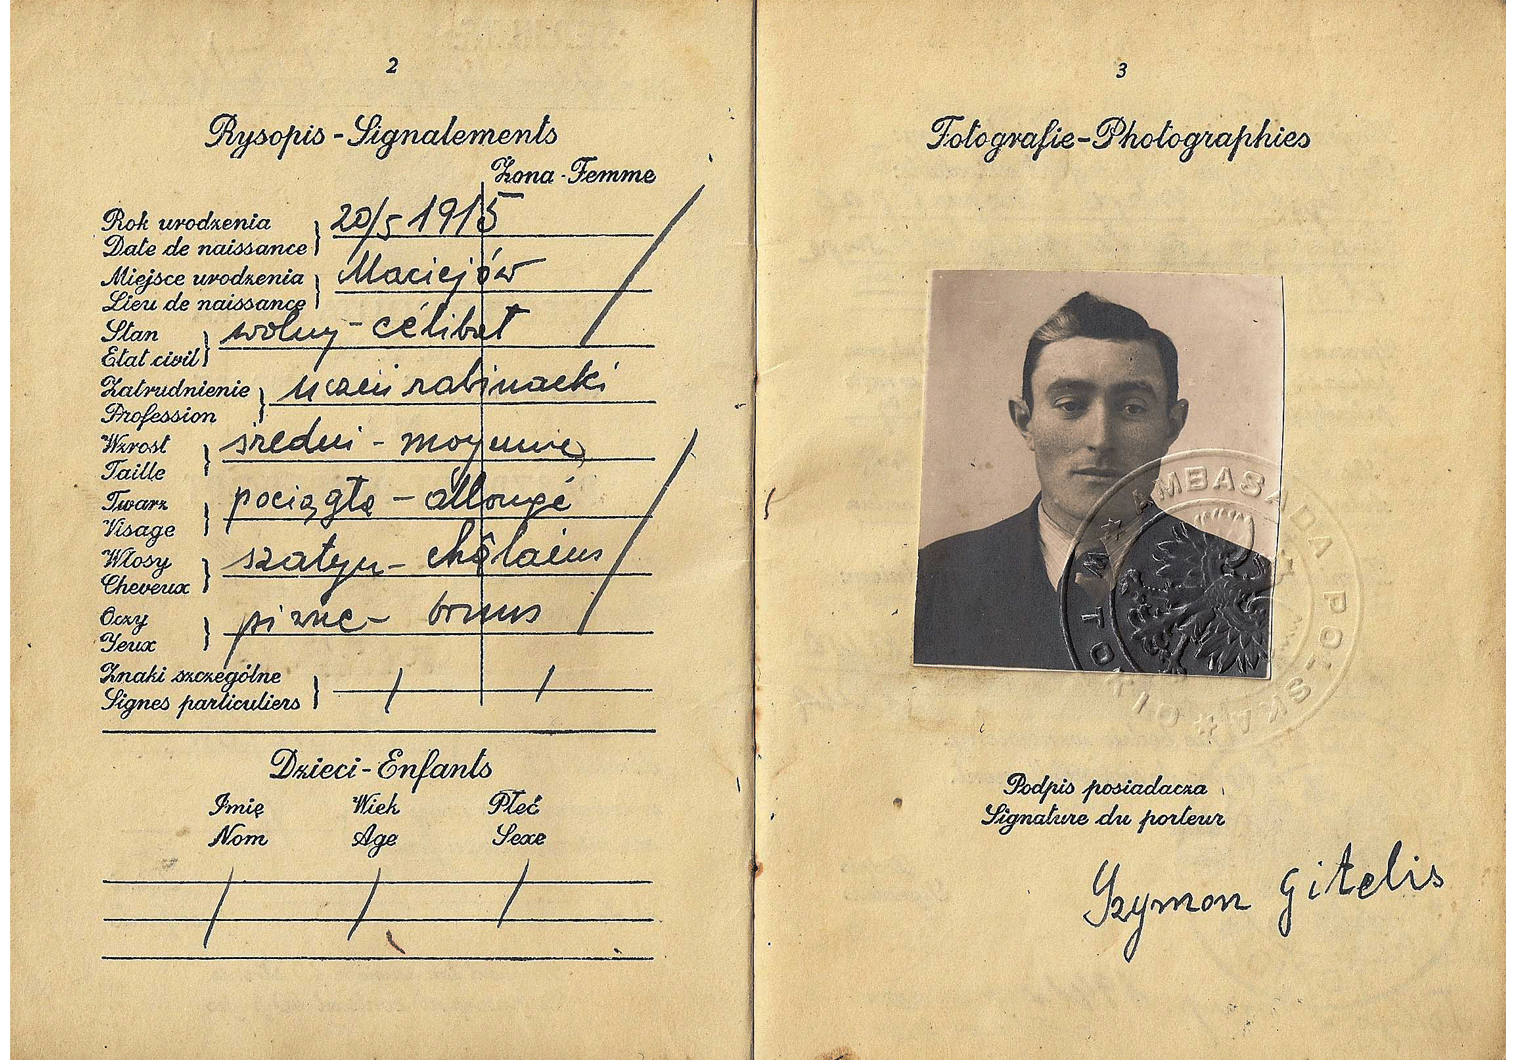 2
Rysopis - Signalements
Żona - Femme
Rok urodzenia
Date de naissance
20/5 1915
Miejsce urodzenia
Lieu de naissance
Maciejów
Stan
Etat civil
wolny - célibat
Zatrudnienie
Profession
uczeń rabinacki
Wzrost
Taille
średni - moyenne
Twarz
Visage
pociągła - allongé
Włosy
Cheveux
szatyn - châtains
Oczy
Yeux
piwne - bruns
Znaki szczególne
Signes particuliers
Dzieci - Enfants
Imię Wiek Płeć
Nom Age Sexe
3
Fotografie - Photographies
AMBASADA POLSKA * W TOKIO *
Podpis posiadacza
Signature du porteur
Szymon Gitelis